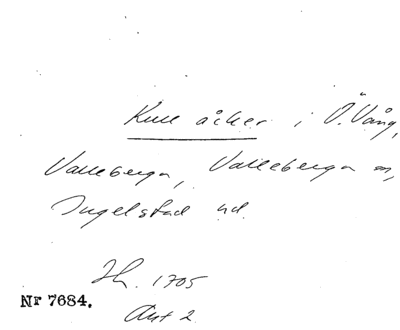 Kull åker i Ö. Vång,
Valleberga, Valleberga sn,
Ingelstad hd.
Jb. 1705
Nr 7684.
Akt 2